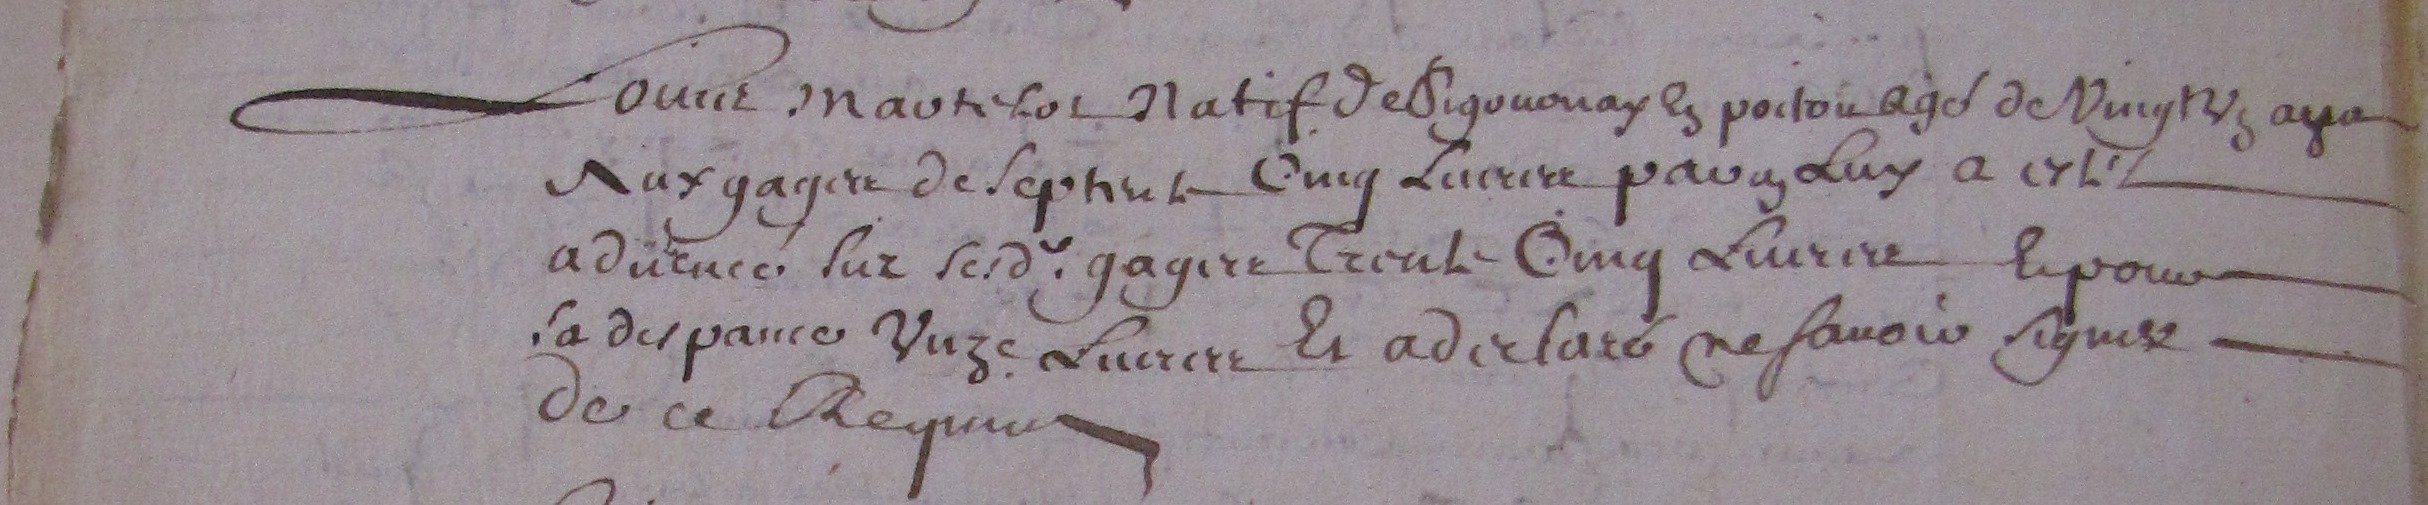 Louis Martelot Natif de Sigournay En poitou agé de Vingt Un ans
Aux gages de septente Cinq Livres par an Luy a esté
aduencé sur sesdts. gages Trente Cinq Livres Et pour
sa despance Unze Livres Et a desclaré ne sauoir signer
de ce Requis